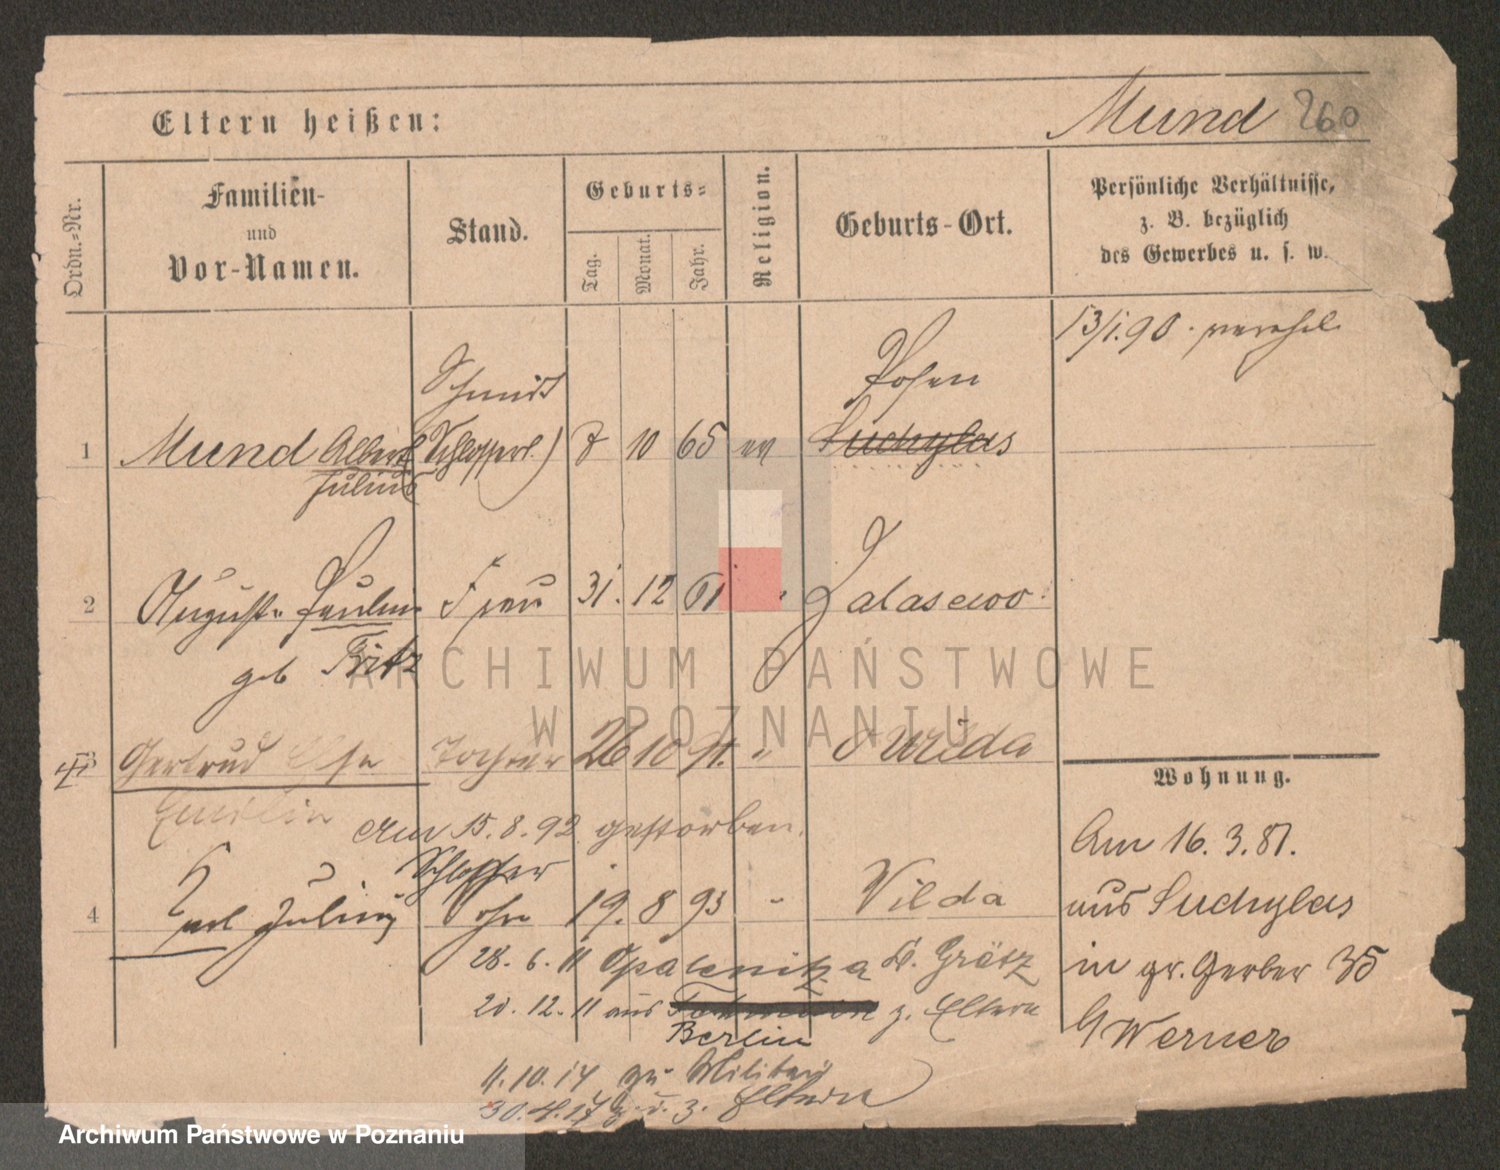 Eltern heißen:
Mund 260
Ordn.-Nr.
Familien-
und
Vor-Namen.
Stand.
Geburts-
Tag.
Monat.
Jahr.
Religion.
Geburts-Ort.
Persönliche Verhältnisse,
z. B. bezüglich
des Gewerbes u. s. w.
13/1.90 verehel.
Schmidt
Posen
1 Mund Albert (Schlosserl.) 8 10 65 ev Suchylas
Julius
2 Auguste Pauline Frau 31. 12 61 " Zalasewo
geb Fritz
3 Gertrud Else Tochter 26 10 91. " Wilda
Emilie
Am 15.8.92 gestorben.
Schlosser
4 Karl Julius Sohn 19. 8 93 " Wilda
28. 6. 11 Opalenitza K. Grätz
20. 12. 11 aus z. Eltern
Berlin
4.10.14 zu Militär
30.4.17 z. Eltern
Wohnung.
Am 16. 3. 87.
aus Suchylas
in gr. Gerber 35
b/ Werner
ARCHIWUM PAŃSTWOWE
W POZNANIU
Archiwum Państwowe w Poznaniu